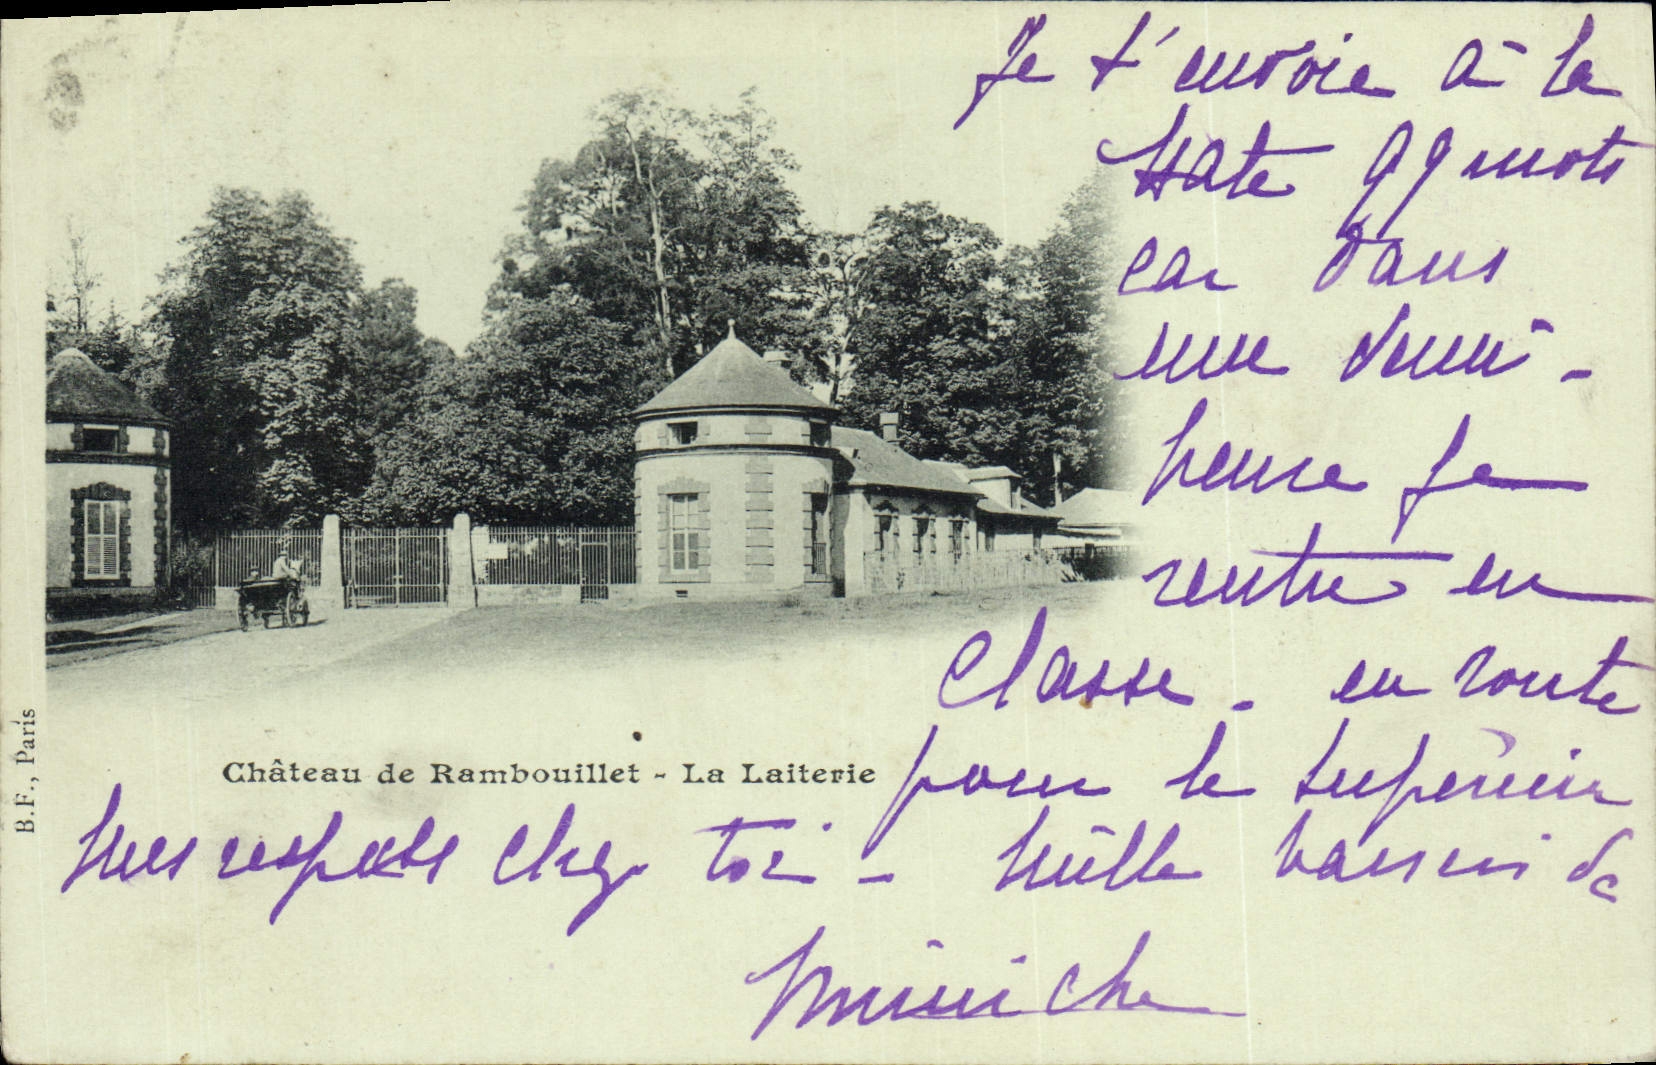 Je t'envoie à la
Hate qq mots
car dans
une demi-
heure je
rentre en
Classe - en route
pour le supérieur
Mes respects chez toi - Mille baisers de
Miniche
Château de Rambouillet - La Laiterie
B.F., Paris